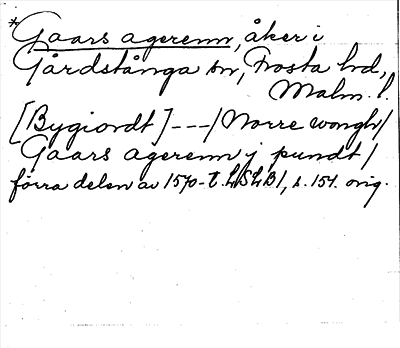 *Gaars agerenn, åker i
Gårdstånga sn, Frosta hd,
Malm. l.
[Bygiordt] --- / Norre wongh /
Gaars agerenn j pundt /
förra delen av 1570-t. LSLB /, s. 154. orig.